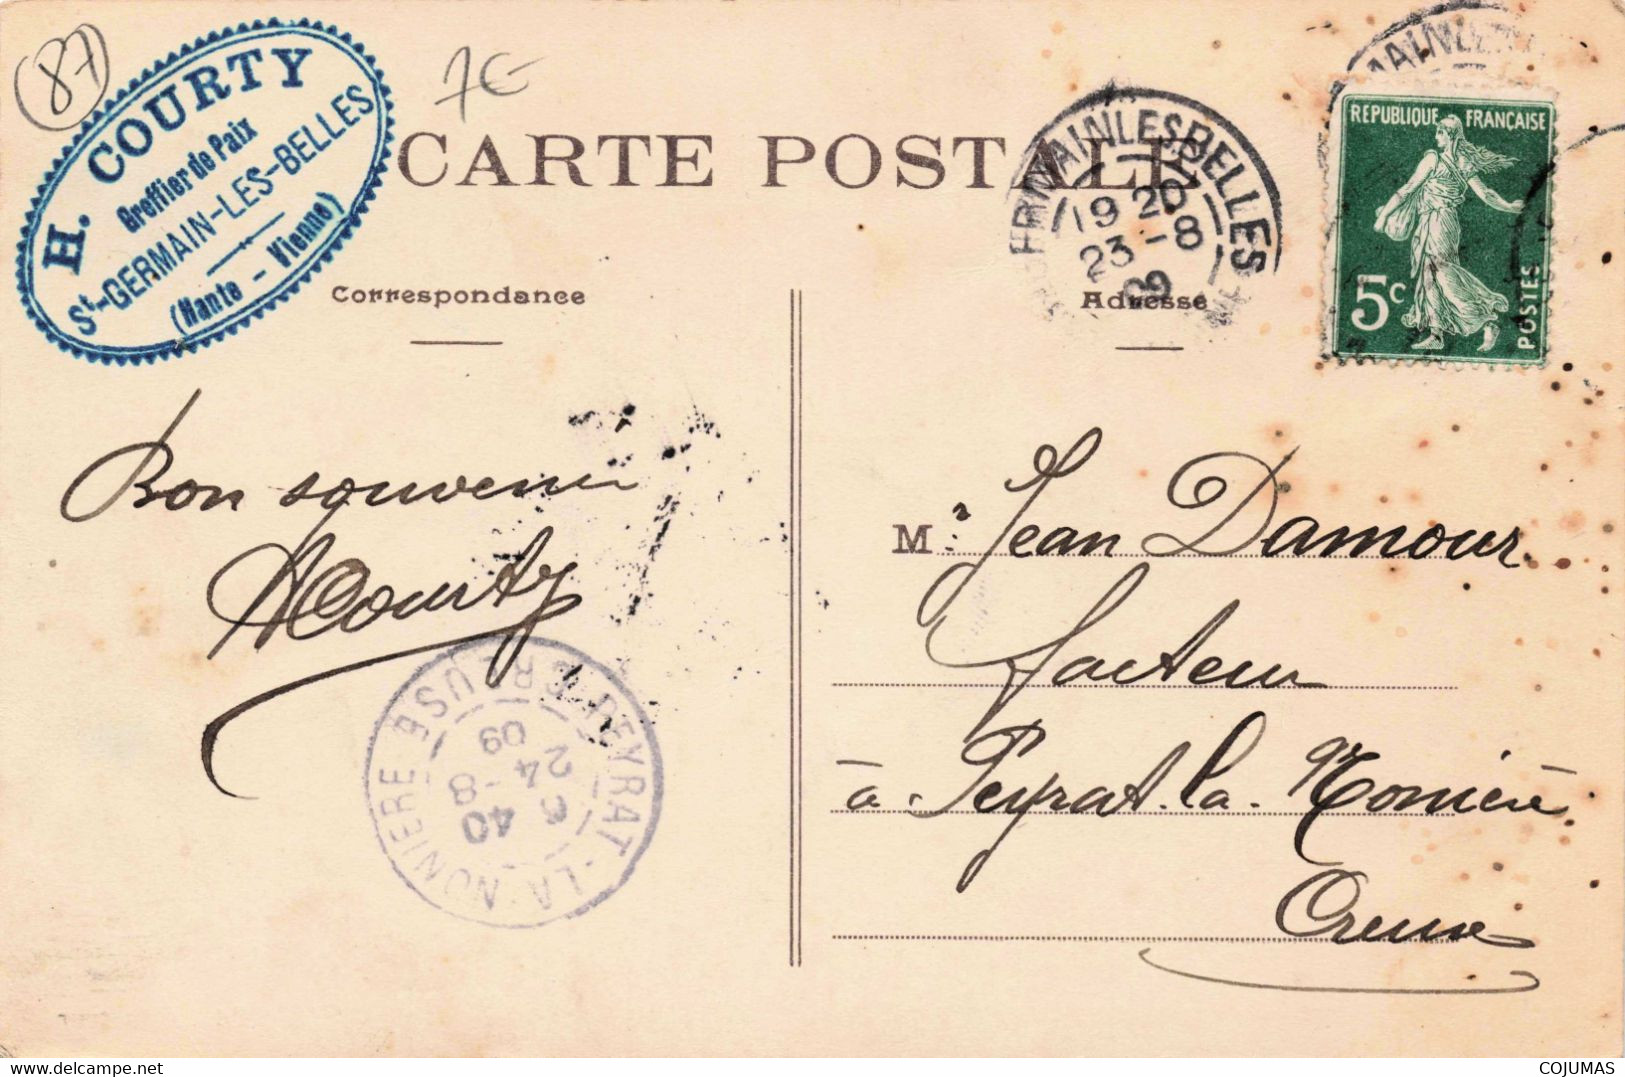 87
7€
H. COURTY
Greffier de Paix
St-GERMAIN-LES-BELLES
(Haute-Vienne)
CARTE POSTALE
Correspondance
Adresse
RMAIN LES BELLES
19 20
23 - 8
09
MAIN LES
REPUBLIQUE FRANÇAISE
5c
POSTES
Bon souvenir
HCourty
Mr. Jean Damour
facteur
à Peyrat-la-Nonière
Creuse
PEYRAT-LA-NONIERE
CREUSE
6 40
24 - 8
09
delcampe.net
COJUMAS